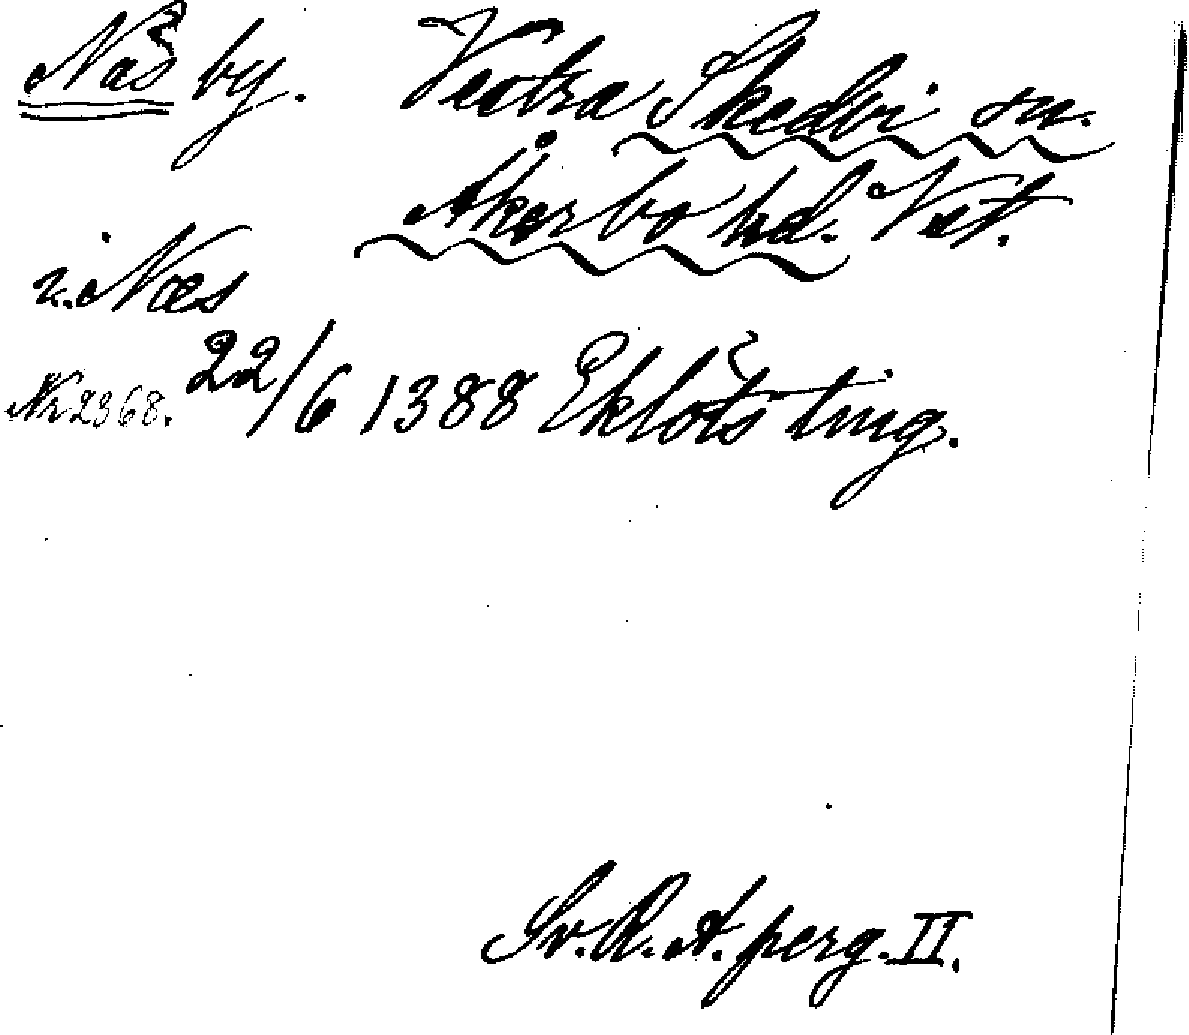 Näs by. Vestra Skedvi sn.
Åkerbo hd. Vst.
i Næs
Nr 2368. 22/6 1388 Eklöts ting.
Sv. R. A. perg. II.